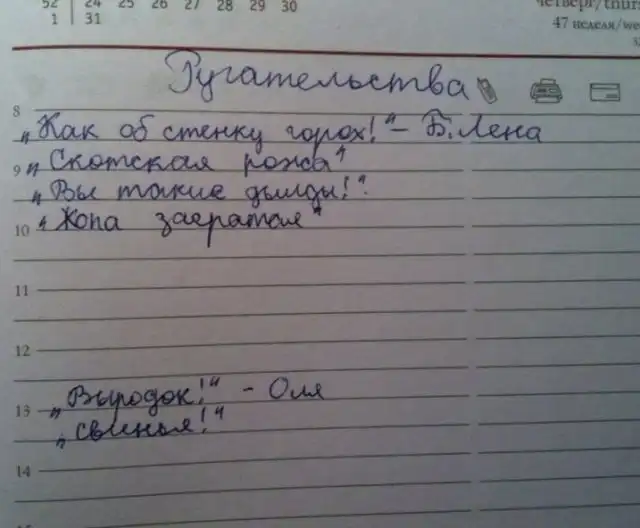 52 24 25 26 27 28 29 30
1 31
четверг/thurs
47 неделя/we
Ругательства
8
„Как об стенку горох!" – Б. Лена
9 „Скотская рожа"
„Вы такие дылды!".
10 „Жопа засратая"
11
12
„Выродок!" - Оля
13
„свинья!"
14